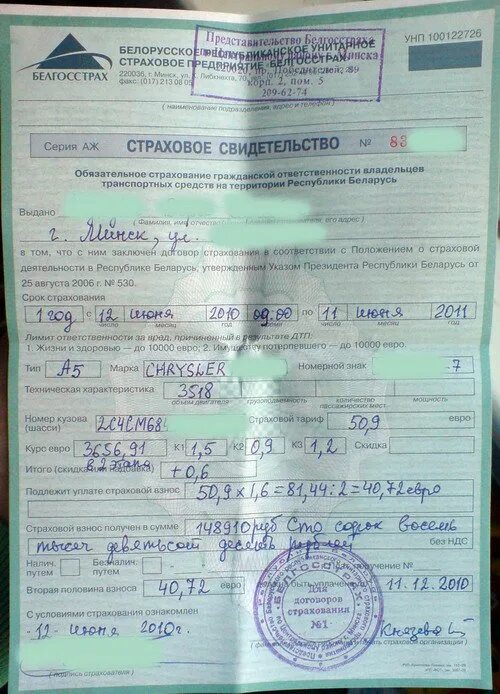 УНП 100122726
БЕЛГОССТРАХ
БЕЛОРУССКОЕ РЕСПУБЛИКАНСКОЕ УНИТАРНОЕ
СТРАХОВОЕ ПРЕДПРИЯТИЕ "БЕЛГОССТРАХ"
220036, г. Минск, ул. Либкнехта, 70
факс: (017) 213 08 05
Представительство Белгосстраха
Минска
корп. 2, пом. 5
209-62-74
(наименование подразделения, адрес и телефон)
Серия АЖ СТРАХОВОЕ СВИДЕТЕЛЬСТВО № 83
Обязательное страхование гражданской ответственности владельцев
транспортных средств на территории Республики Беларусь
Выдано
(Фамилия, имя, отчество его адрес)
г. Минск, ул.
в том, что с ним заключен договор страхования в соответствии с Положением о страховой
деятельности в Республике Беларусь, утвержденным Указом Президента Республики Беларусь от
25 августа 2006 г. № 530.
Срок страхования
1 год с 12 июня 2010 00.00 по 11 июня 2011
число месяц год число месяц год
Лимит ответственности за вред, причиненный в результате ДТП:
1. Жизни и здоровью — до 10000 евро; 2. Имуществу потерпевшего — до 10000 евро.
Тип А5 Марка CHRYSLER Номерной знак -7
Техническая характеристика 3518
объем двигателя грузоподъемность количество пассажирских мест мощность
Номер кузова (шасси) 2C4CM68 Страховой тариф 50,9 евро
Курс евро 3656,91 К1 1,5 К2 0,9 К3 1,2 Скидка
в 2 этапа
Итого (скидка или надбавка) +0,6
Подлежит уплате страховой взнос 50,9 х 1,6 = 81,44 : 2 = 40,72 евро
Страховой взнос получен в сумме 148910 руб Сто сорок восемь
тысяч девятьсот десять рублей без НДС
Налич. путем Безналич. путем поручение №
Вторая половина взноса 40,72 евро должна быть уплачена до 11.12.2010
С условиями страхования ознакомлен
12 июня 2010г.
(подпись страхователя)
для
договоров
страхования
№1
БЕЛГОССТРАХ
страховой организации)